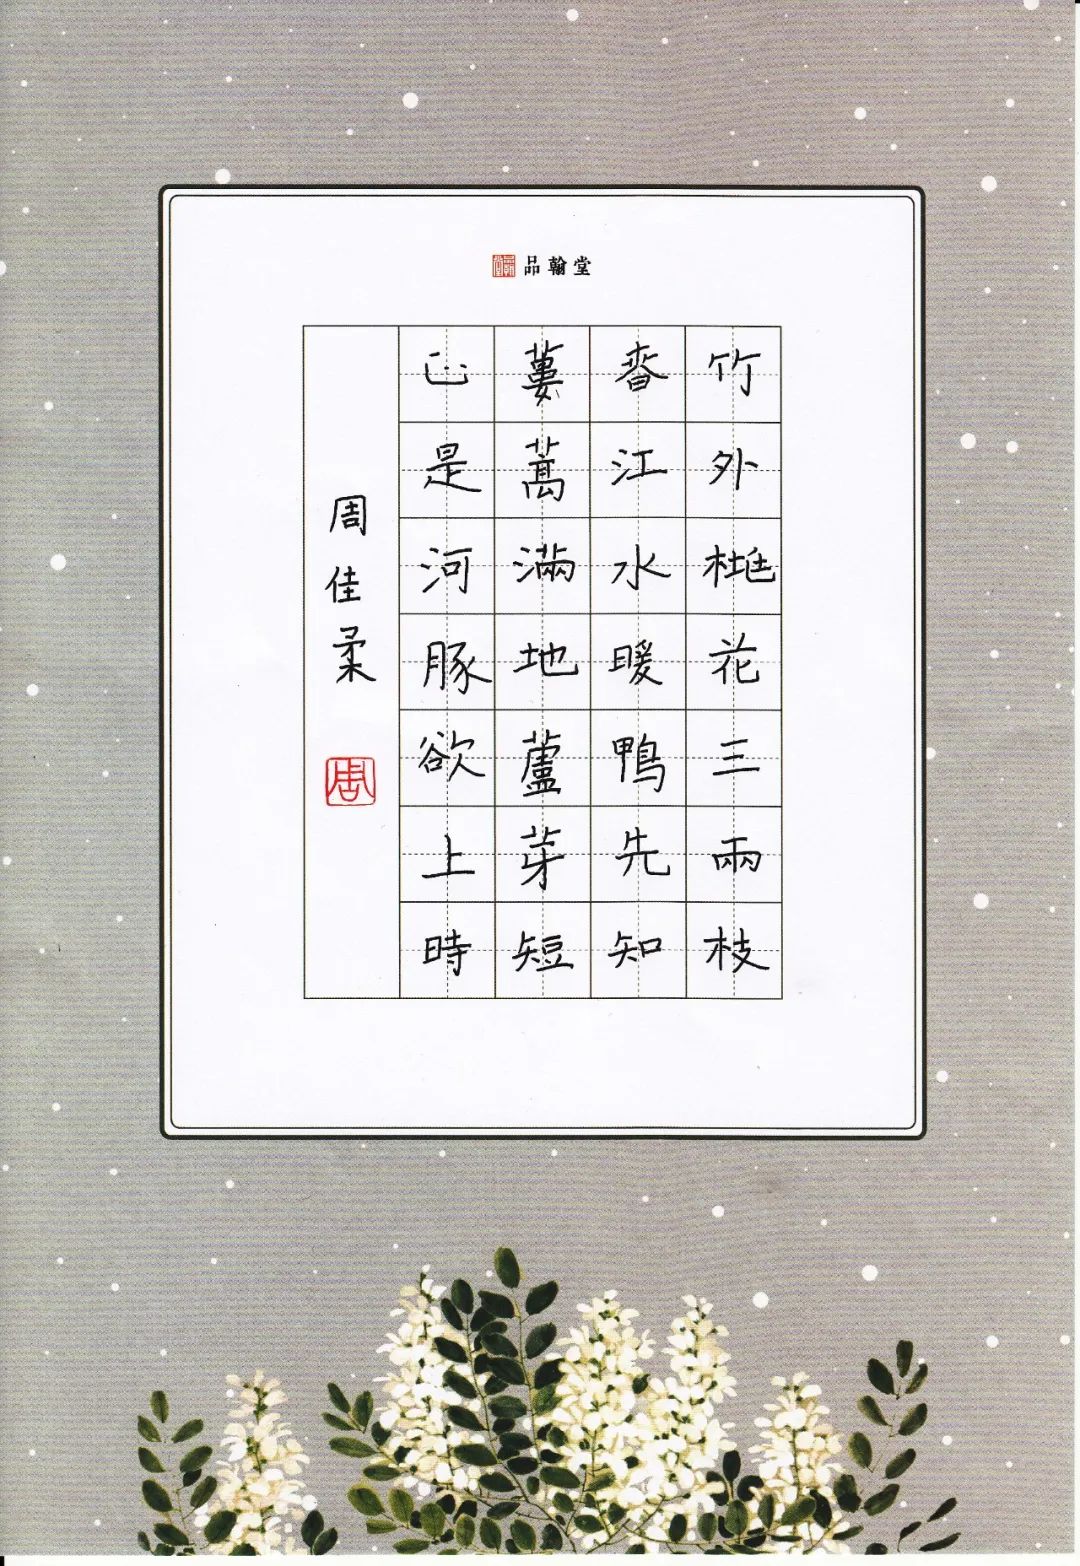 品翰堂
竹外桃花三兩枝
春江水暖鴨先知
蔞蒿滿地蘆芽短
正是河豚欲上時
周佳柔
周